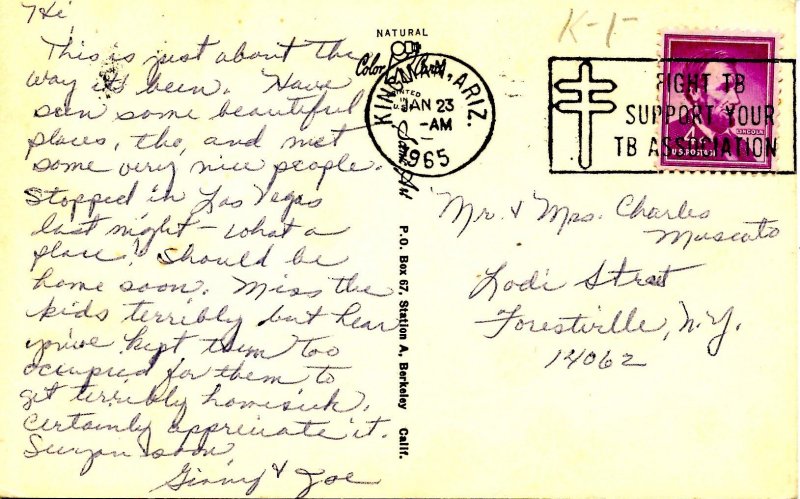 Hi
This is just about the
way it's been. Have
seen some beautiful
places, tho, and met
some very nice people.
Stopped in Las Vegas
last night - what a
place! Should be
home soon. Miss the
kids terribly but hear
you've kept them too
occupied for them to
get terribly homesick.
Certainly appreciate it.
See you soon
Ginny & Joe
NATURAL
Color Card
P.O. Box 67, Station A, Berkeley Calif.
K-1-
KINGMAN, ARIZ.
JAN 23
-AM
1965
FIGHT TB
SUPPORT YOUR
TB ASSOCIATION
4
LINCOLN
U.S. POSTAGE
Mr. & Mrs. Charles
Muscato
Lodi Street
Forestville, N.Y.
14062